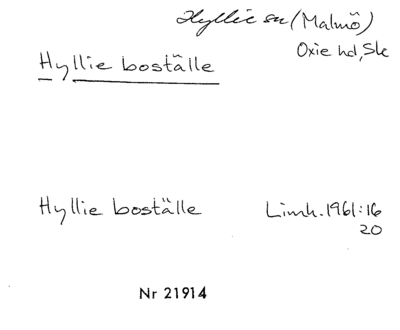 Hyllie sn (Malmö)
Oxie hd, Sk
Hyllie boställe
Hyllie boställe Limh. 1961:16
20
Nr 21914